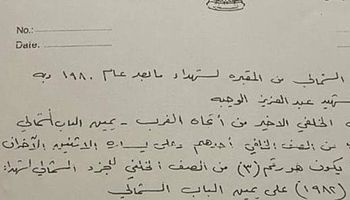 No.:
Date.
الشمالي من المقبره لشهداء مابعد عام ١٩٨٠ وبه
شهيد عبد العزيز الوجبه
الخلفي الاخير من اتجاه الغرب - يمين الباب الشمالي
من الصف الثاني أحدهم وعلى يساره الاثنين الآخران
يكون هو رقم (٣) من الصف الخلفي للجزء الشمالي لشهداء
(١٩٨٢) على يمين الباب الشمالي